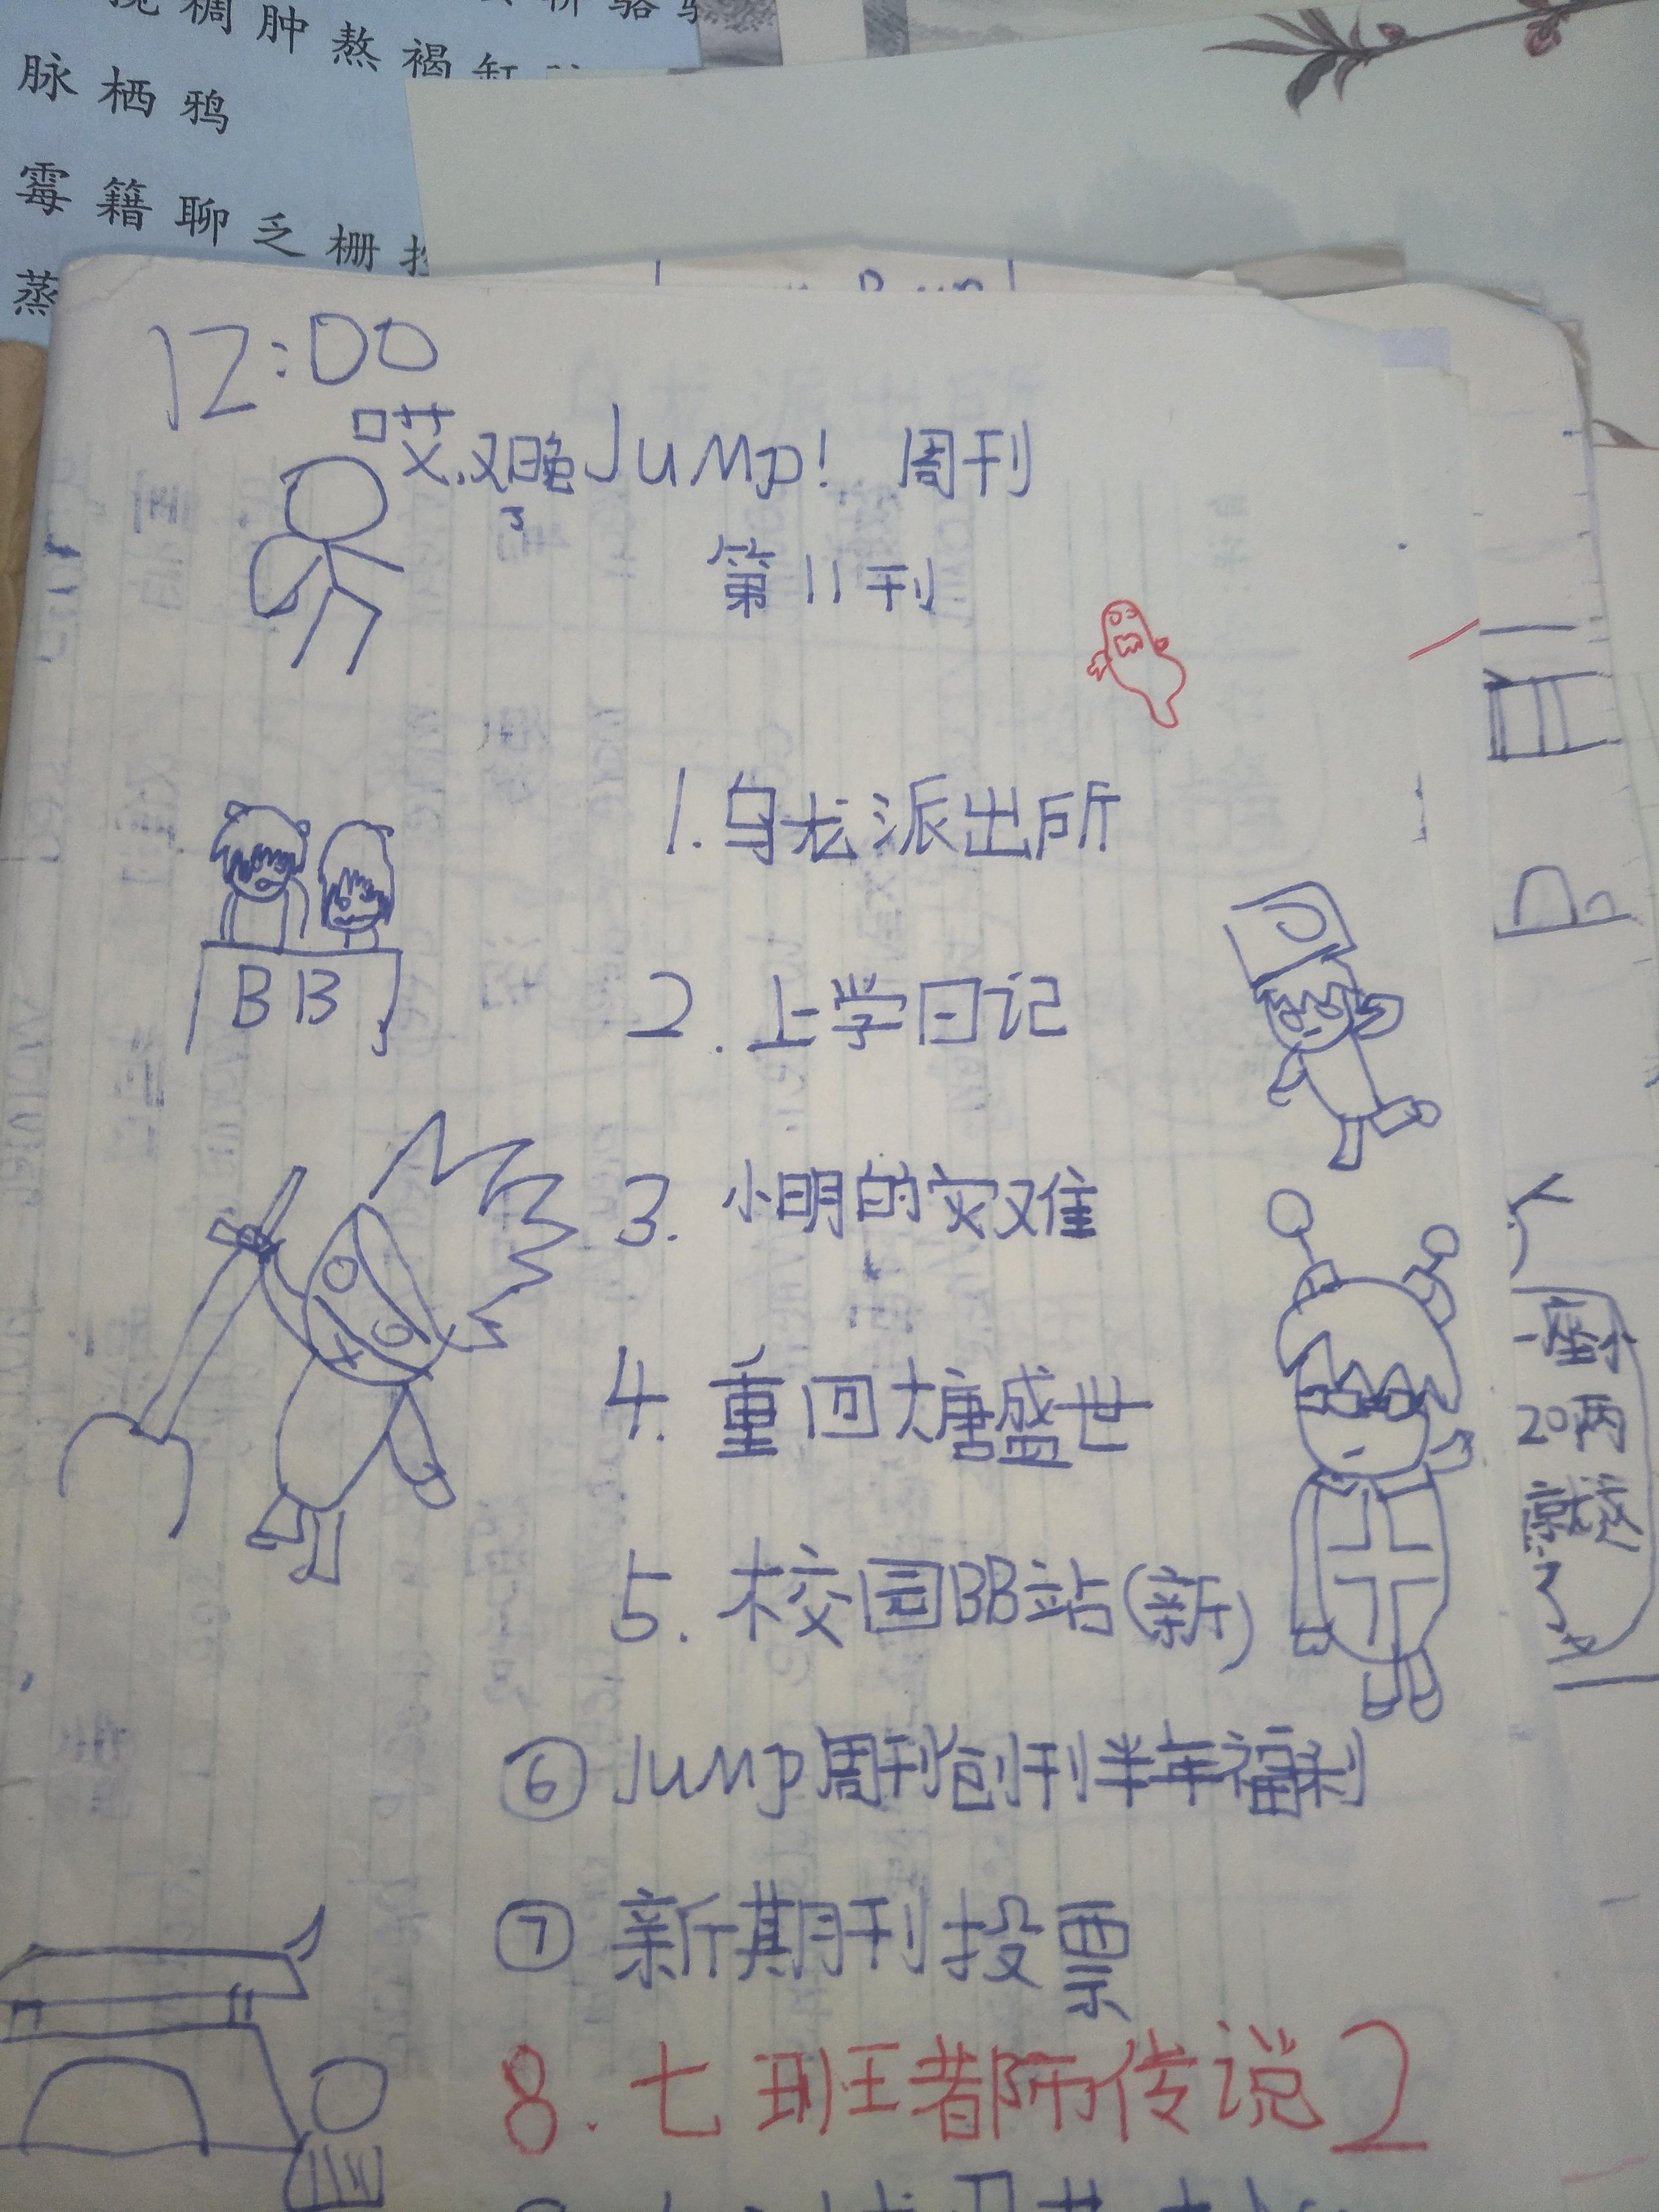 稠肿熬褐缸
脉栖鸦
霉籍聊乏栅
蒸
12:00
哎.又晚了
Jump! 周刊
第11刊
1.乌龙派出所
BB
2.上学日记
3.小明的灾难
4.重回大唐盛世
5.校园BB站(新)
⑥Jump周刊创刊半年福利
⑦新期刊投票
8.七班都市传说2
20两